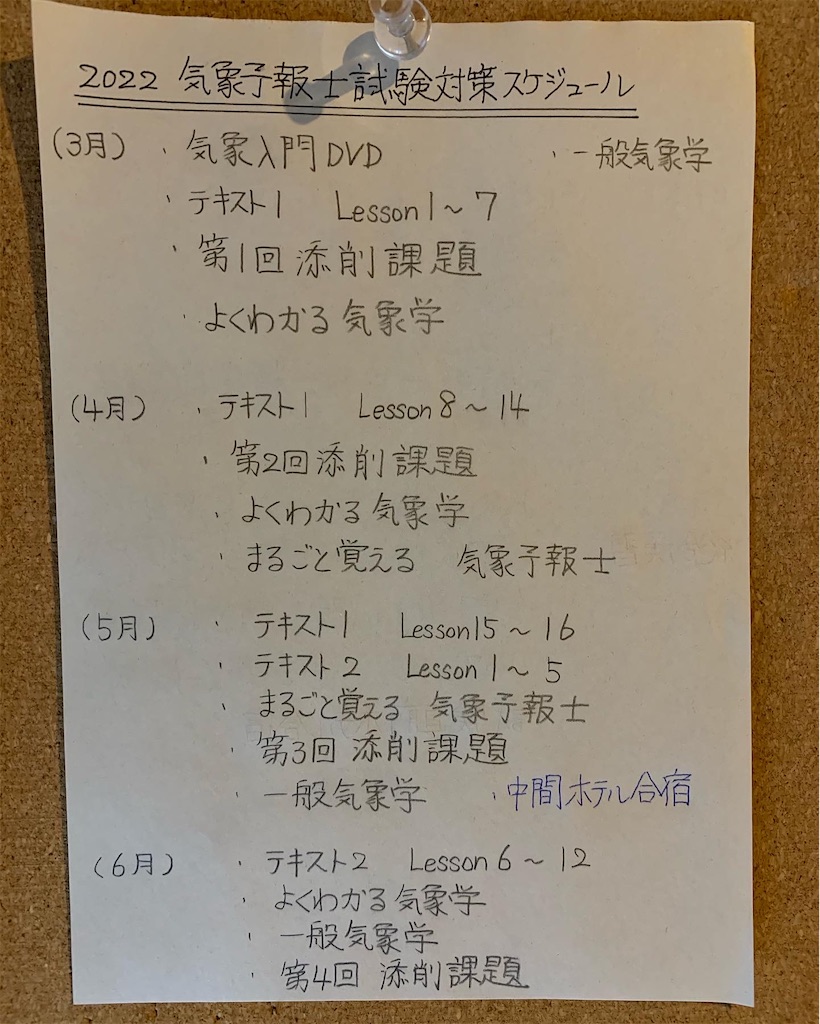 2022 気象予報士試験対策スケジュール
(3月) ・気象入門DVD ・一般気象学
・テキスト1 Lesson1〜7
・第1回添削課題
・よくわかる気象学
(4月) ・テキスト1 Lesson8〜14
・第2回添削課題
・よくわかる気象学
・まるごと覚える 気象予報士
(5月) ・テキスト1 Lesson15〜16
・テキスト2 Lesson1〜5
・まるごと覚える 気象予報士
・第3回添削課題
・一般気象学 ・中間ホテル合宿
(6月) ・テキスト2 Lesson6〜12
・よくわかる気象学
・一般気象学
・第4回 添削課題